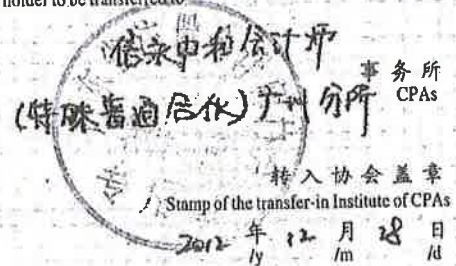 holder to be transferred to
信永中和会计师
事务所
CPAs
(特殊普通合伙)广州分所
转入协会盖章
Stamp of the transfer-in Institute of CPAs
2012 年 12 月 28 日
/y /m /d